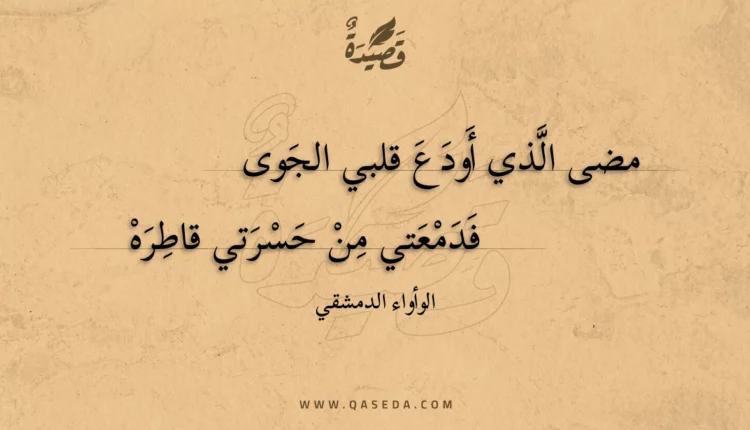 قَصِيدَةٌ
مضى الَّذي أَودَعَ قلبي الجَوى
فَدَمْعَتي مِنْ حَسْرَتي قاطِرَهْ
الوأواء الدمشقي
WWW.QASEDA.COM